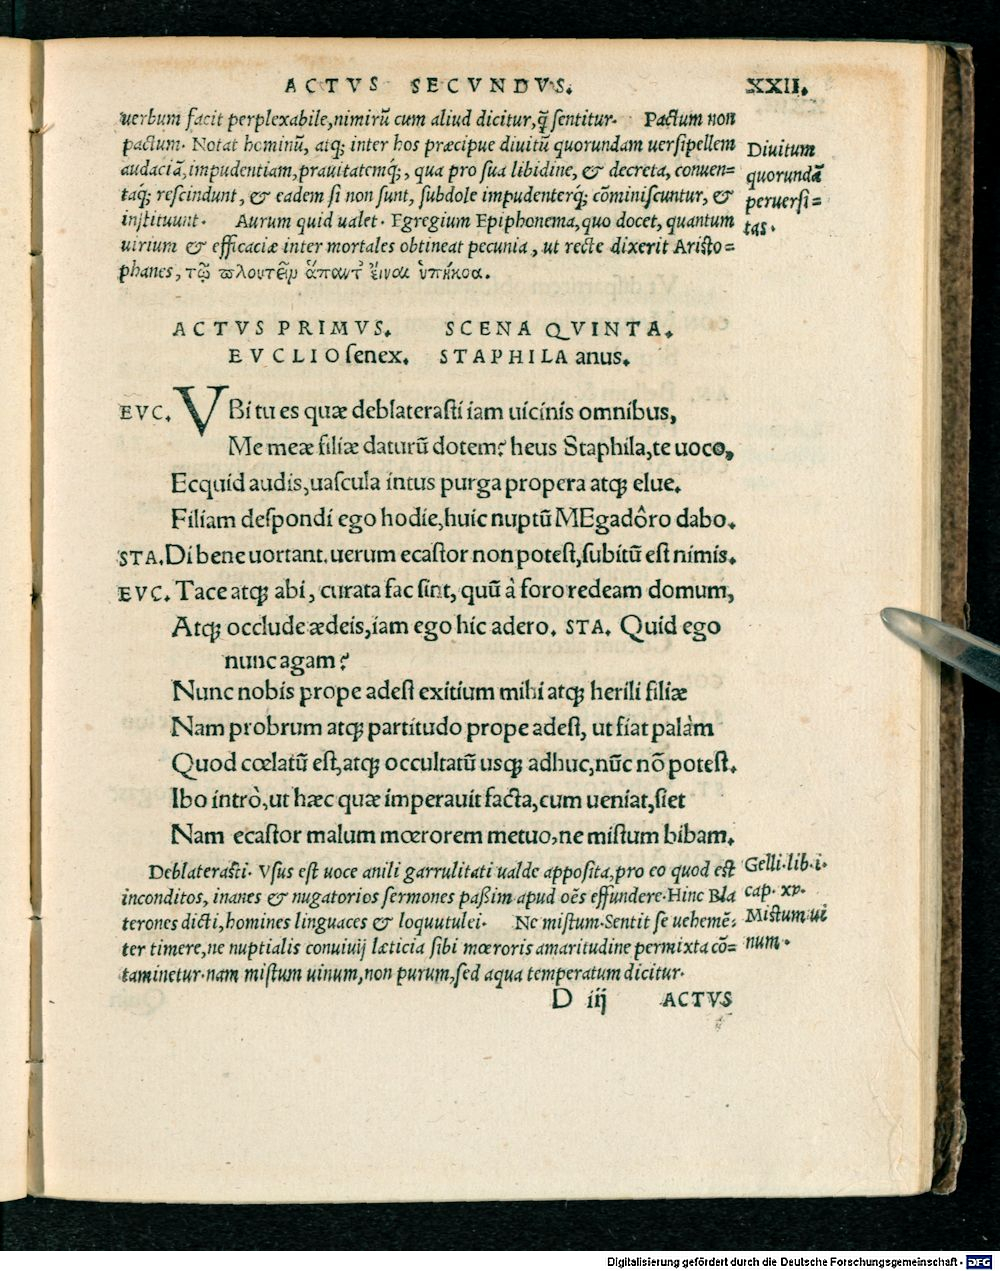 ACTVS SECVNDVS. XXII.
uerbum facit perplexabile, nimirũ cum aliud dicitur, q̃ sentitur. Pactum non
pactum. Notat hominũ, atq; inter hos præcipue diuitũ quorundam uersipellem
audaciã, impudentiam, prauitatemq́;, qua pro sua libidine, & decreta, conuen=
taq́; rescindunt, & eadem si non sunt, subdole impudenterq́; cõminiscuntur, &
instituunt. Aurum quid ualet. Egregium Epiphonema, quo docet, quantum
uirium & efficaciæ inter mortales obtineat pecunia, ut recte dixerit Aristo=
phanes, τῷ πλουτεῖν ἅπαντ᾽ εἶναι ὑπήκοα.
Diuitum
quorundã
peruersi=
tas.
ACTVS PRIMVS. SCENA QVINTA.
EVCLIO senex. STAPHILA anus.
EVC. VBi tu es quæ deblaterasti iam uicinis omnibus,
Me meæ filiæ daturũ dotem? heus Staphila, te uoco,
Ecquid audis, uascula intus purga propera atq; elue.
Filiam despondi ego hodie, huic nuptũ MEgadôro dabo.
STA. Di bene uortant. uerum ecastor non potest, subitũ est nimis.
EVC. Tace atq; abi, curata fac sint, quũ à foro redeam domum,
Atq; occlude ædeis, iam ego hic adero. STA. Quid ego
nunc agam?
Nunc nobis prope adest exitium mihi atq; herili filiæ
Nam probrum atq; partitudo prope adest, ut fiat palàm
Quod cœlatũ est, atq; occultatũ usq; adhuc, nũc nõ potest.
Ibo intrò, ut hæc quæ imperauit facta, cum ueniat, siet
Nam ecastor malum mœrorem metuo, ne mistum bibam.
Deblaterasti. Vsus est uoce anili garrulitati ualde apposita, pro eo quod est
inconditos, inanes & nugatorios sermones paßim apud oẽs effundere. Hinc Bla
terones dicti, homines linguaces & loquutulei. Ne mistum. Sentit se uehemẽ=
ter timere, ne nuptialis conuiuij læticia sibi mœroris amaritudine permixta cõ=
taminetur. nam mistum uinum, non purum, sed aqua temperatum dicitur.
Gelli. lib. i.
cap. xv.
Mistum ui
num.
D iij ACTVS
Digitalisierung gefördert durch die Deutsche Forschungsgemeinschaft - DFG